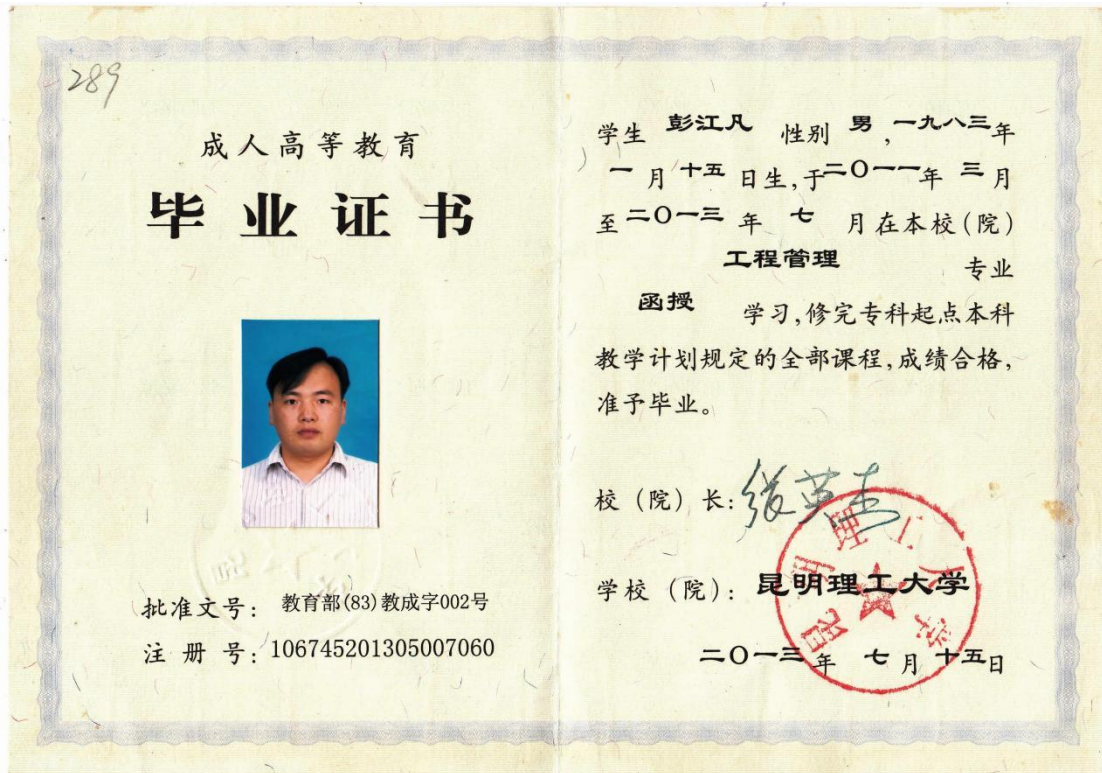 289
成人高等教育
毕业证书
批准文号：教育部(83)教成字002号
注册号：106745201305007060
学生 彭江凡 性别 男，一九八三年
一月十五日生，于二〇一一年三月
至二〇一三年七月在本校(院)
工程管理 专业
函授 学习，修完专科起点本科
教学计划规定的全部课程，成绩合格，
准予毕业。
校（院）长：张英杰
学校（院）：昆明理工大学
昆明理工大学
二〇一三年七月十五日